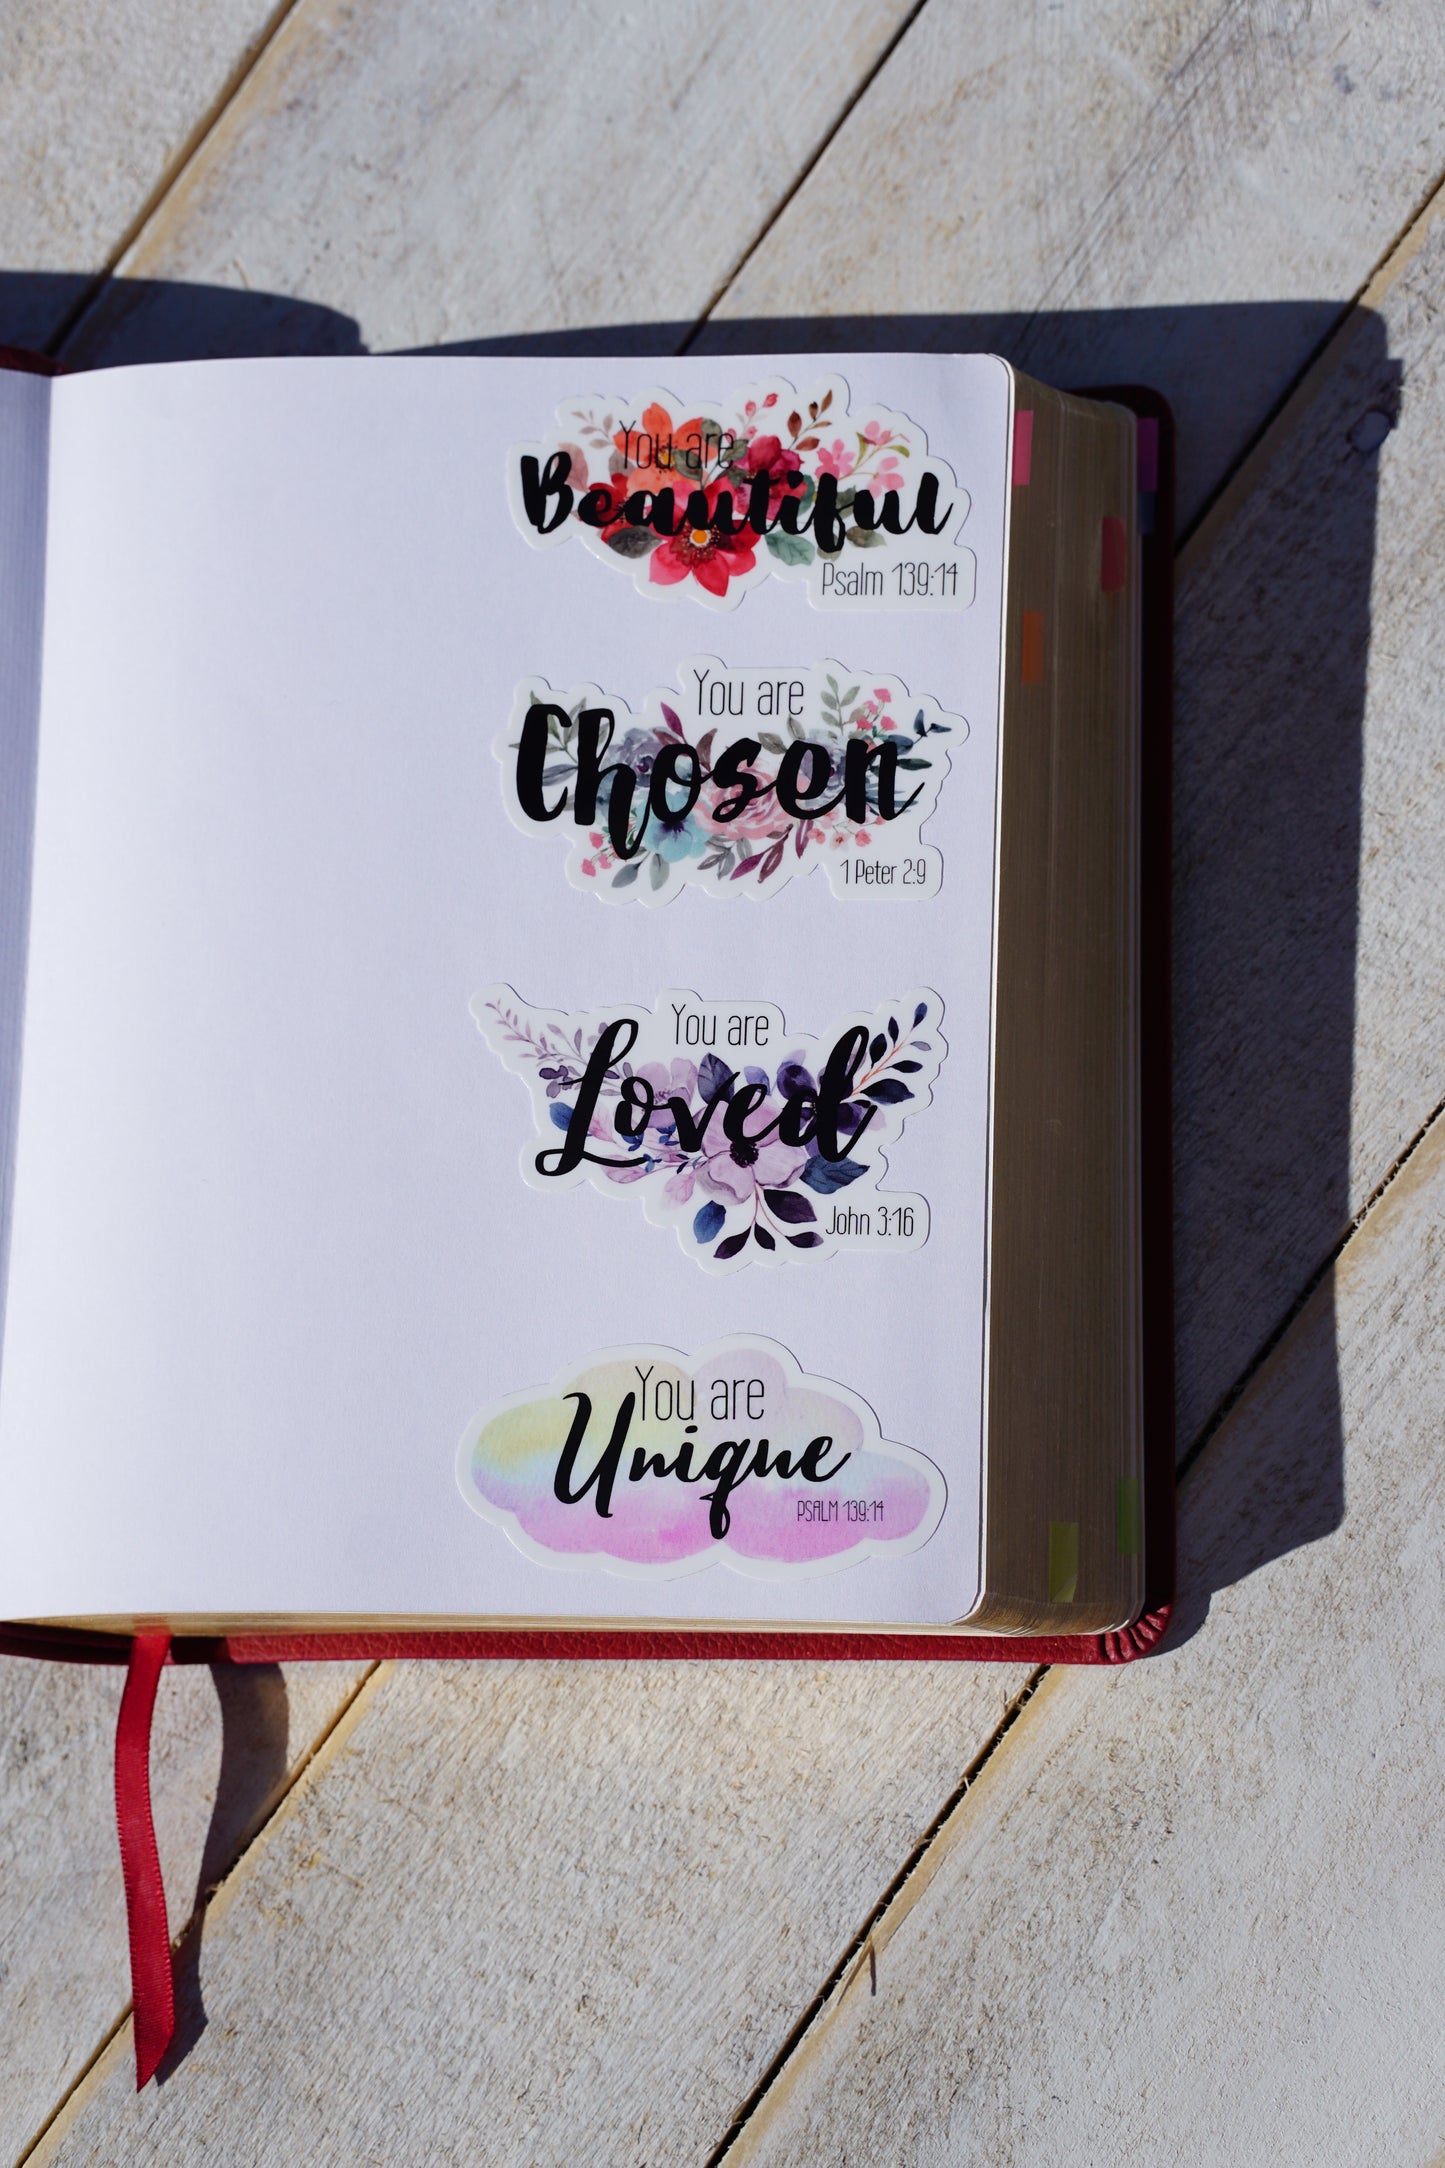 You are
Beautiful
Psalm 139:14
You are
Chosen
1 Peter 2:9
You are
Loved
John 3:16
You are
Unique
PSALM 139:14